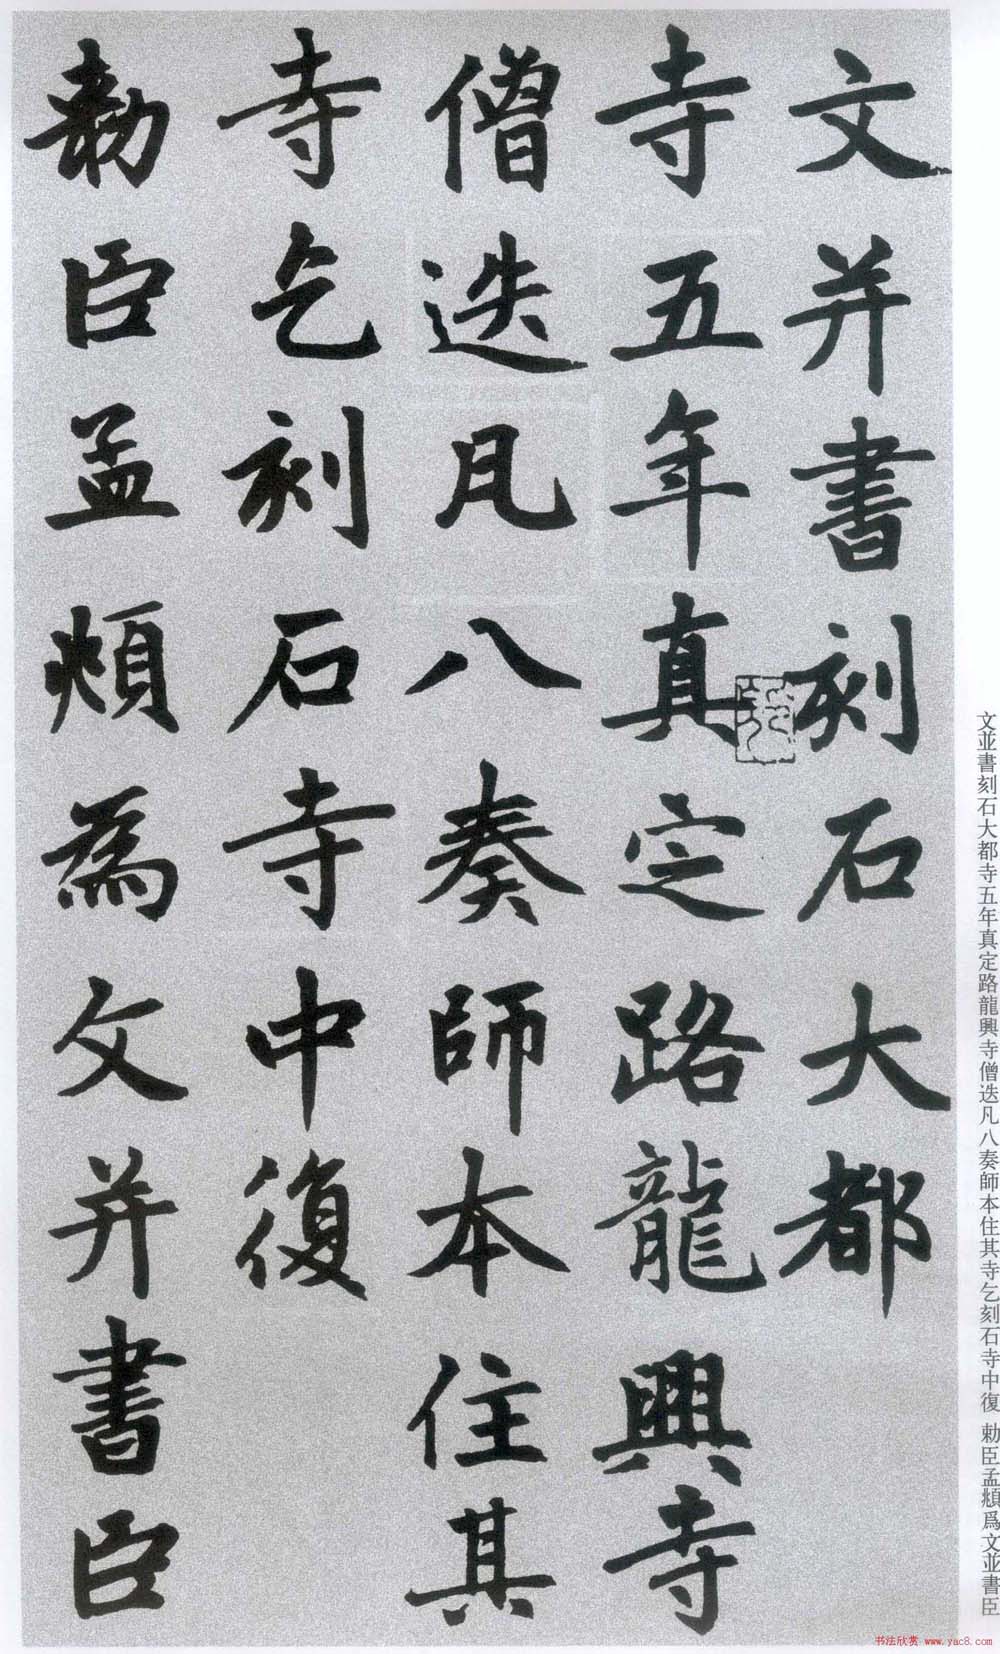 文并書刻石大都
寺五年真定路龍興寺
僧迭凡八奏師本住其
寺乞刻石寺中復
勑臣孟頫為文并書臣
文並書刻石大都寺五年真定路龍興寺僧迭凡八奏師本住其寺乞刻石寺中復 勅臣孟頫爲文並書臣
书法欣赏 www.yac8.com